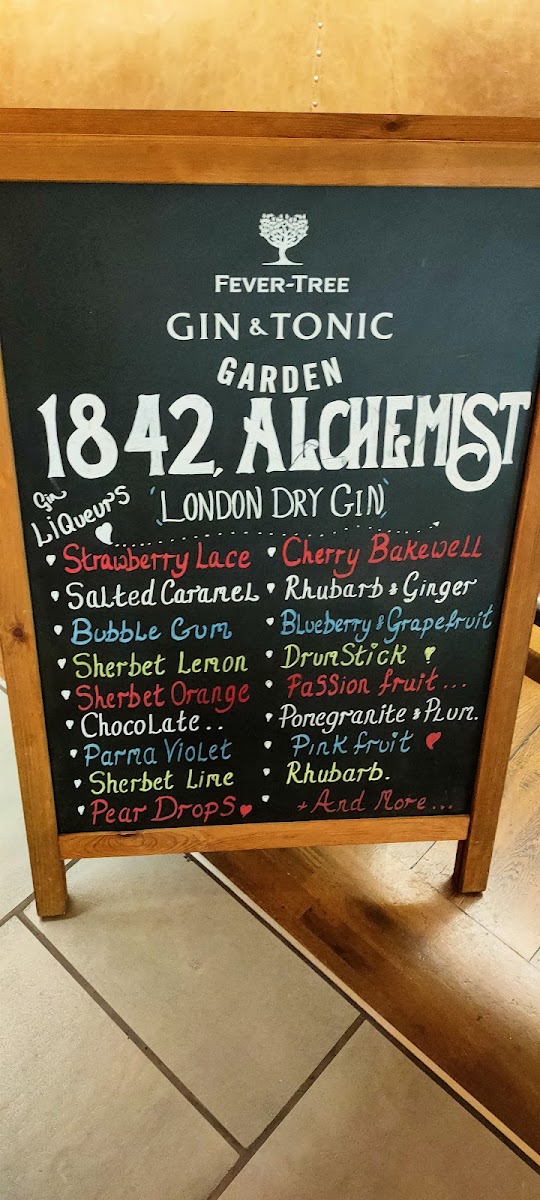 FEVER-TREE
GIN & TONIC
GARDEN
1842, ALCHEMIST
Gin
LiQueur's
'LONDON DRY GIN'
Strawberry Lace
Salted Caramel
Bubble Gum
Sherbet Lemon
Sherbet Orange
Chocolate..
Parma Violet
Sherbet Lime
Pear Drops
Cherry Bakewell
Rhubarb & Ginger
Blueberry & Grapefruit
DrumStick
Passion fruit...
Pomegranite & Plum.
Pink fruit
Rhubarb.
+ And More...